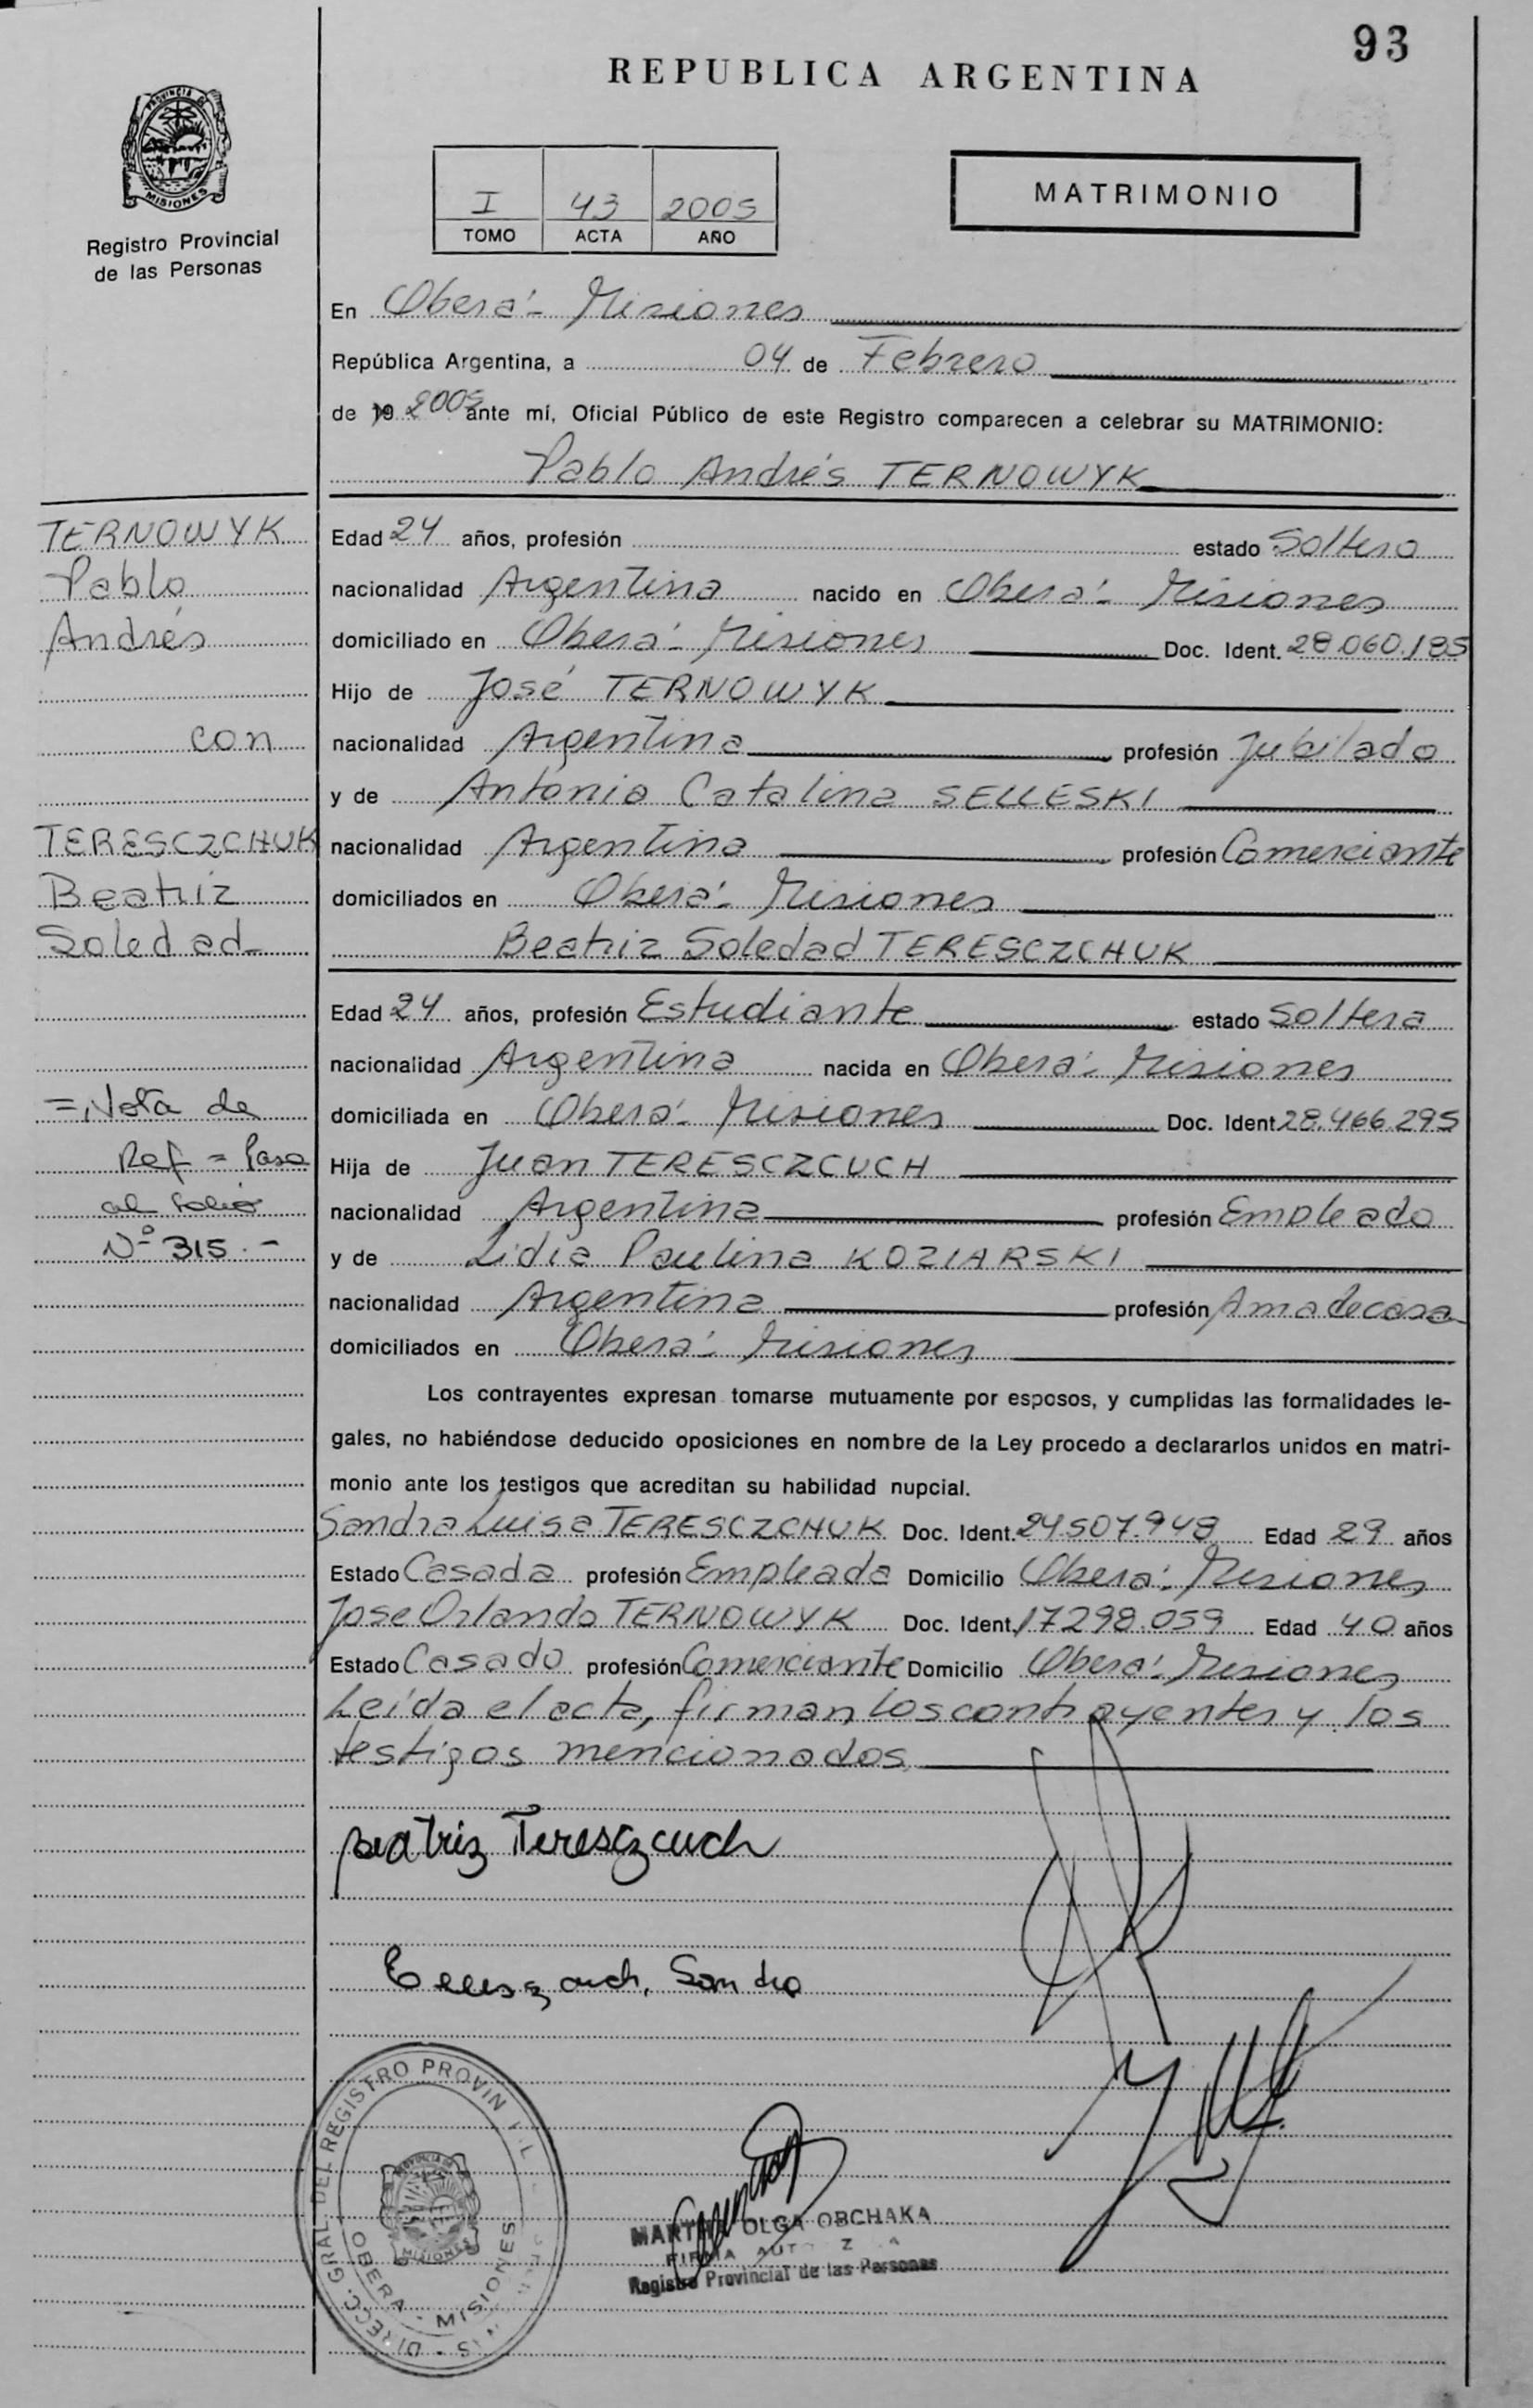 93
REPUBLICA ARGENTINA
PROVINCIA DE
MISIONES
Registro Provincial
de las Personas
I 43 2005
TOMO ACTA AÑO
MATRIMONIO
En Oberá - Misiones
República Argentina, a 04 de Febrero
de 19 2005 ante mí, Oficial Público de este Registro comparecen a celebrar su MATRIMONIO:
Pablo Andrés TERNOWYK
TERNOWYK
Pablo
Andrés
con
TERESCZCHUK
Beatriz
Soledad
= Nota de
Ref = Pasa
al folio
Nº 315.-
Edad 24 años, profesión estado Soltero
nacionalidad Argentina nacido en Oberá - Misiones
domiciliado en Oberá - Misiones Doc. Ident. 28.060.185
Hijo de José TERNOWYK
nacionalidad Argentina profesión Jubilado
y de Antonia Catalina SELLESKI
nacionalidad Argentina profesión Comerciante
domiciliados en Oberá - Misiones
Beatriz Soledad TERESCZCHUK
Edad 24 años, profesión Estudiante estado Soltera
nacionalidad Argentina nacida en Oberá - Misiones
domiciliada en Oberá - Misiones Doc. Ident 28.466.295
Hija de Juan TERESCZCUCH
nacionalidad Argentina profesión Empleado
y de Lidia Paulina KOZIARSKI
nacionalidad Argentina profesión Ama de casa
domiciliados en Oberá - Misiones
Los contrayentes expresan tomarse mutuamente por esposos, y cumplidas las formalidades le-
gales, no habiéndose deducido oposiciones en nombre de la Ley procedo a declararlos unidos en matri-
monio ante los testigos que acreditan su habilidad nupcial.
Sandra Luisa TERESCZCHUK Doc. Ident. 24.507.948 Edad 29 años
Estado Casada profesión Empleada Domicilio Oberá - Misiones
Jose Orlando TERNOWYK Doc. Ident. 17298.059 Edad 40 años
Estado Casado profesión Comerciante Domicilio Oberá - Misiones
Leída el acta, firman los contrayentes y los
testigos mencionados
Beatriz Teresczcuch
Teresczcuch, Sandra
DIRECC. GRAL. DEL REGISTRO PROVIN
OBERA - MISIONES
MARTHA OLGA OBCHAKA
FIRMA AUTORIZADA
Registro Provincial de las Personas